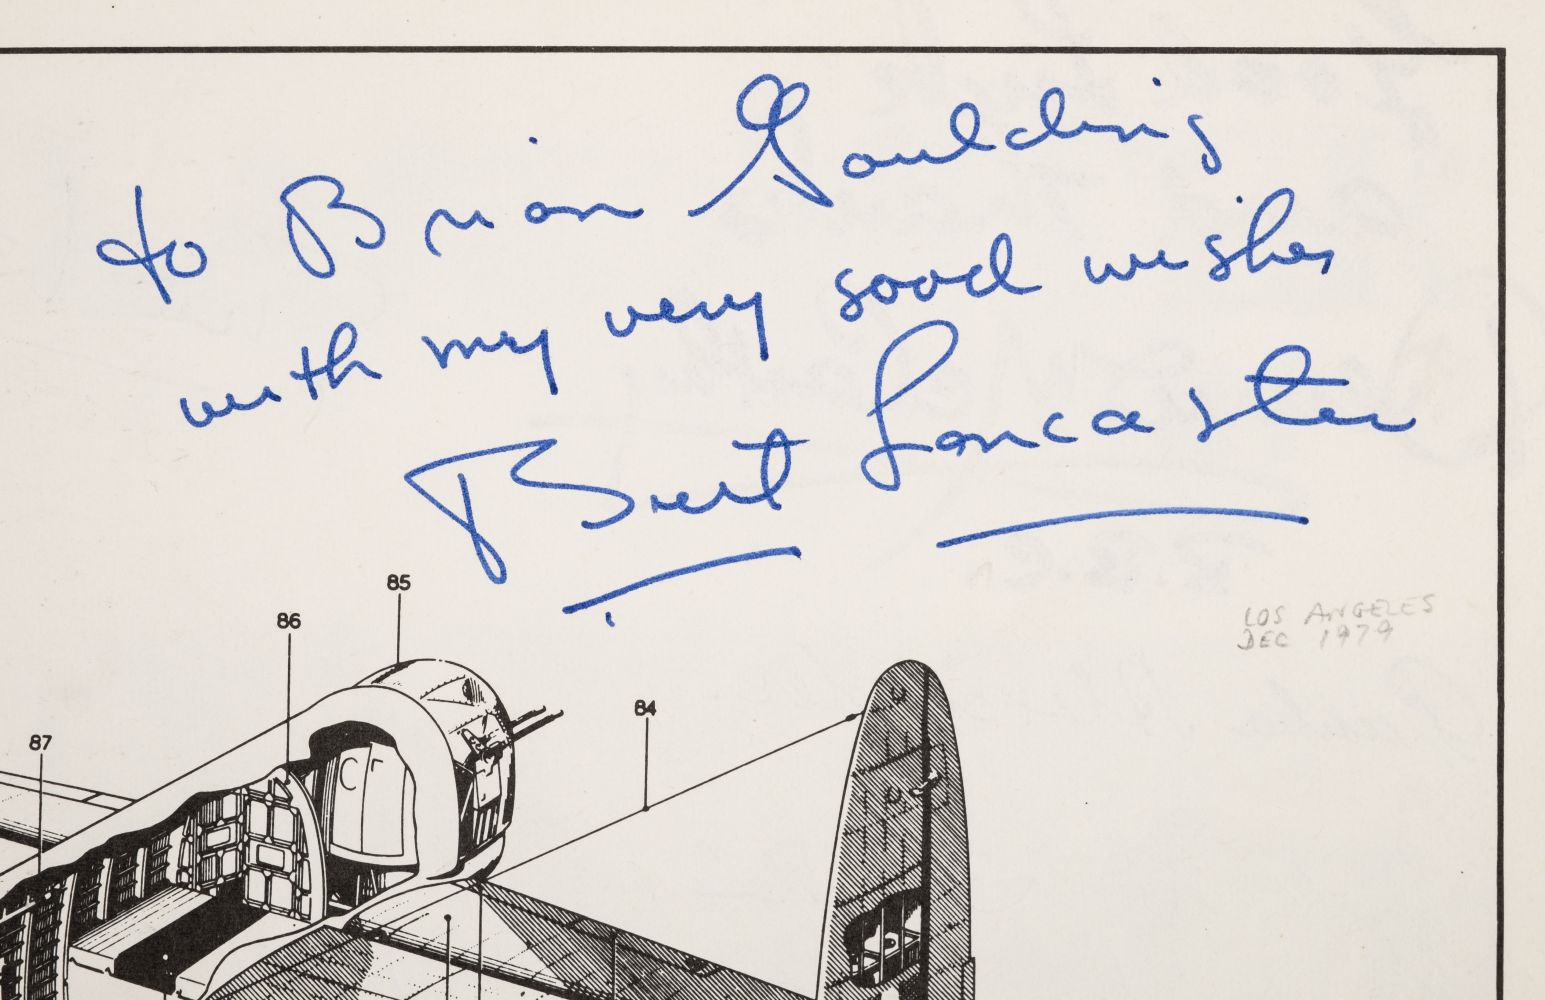 to Brian Goulding
with my very good wishes
Burt Lancaster
LOS ANGELES
DEC 1979
85
86
84
87